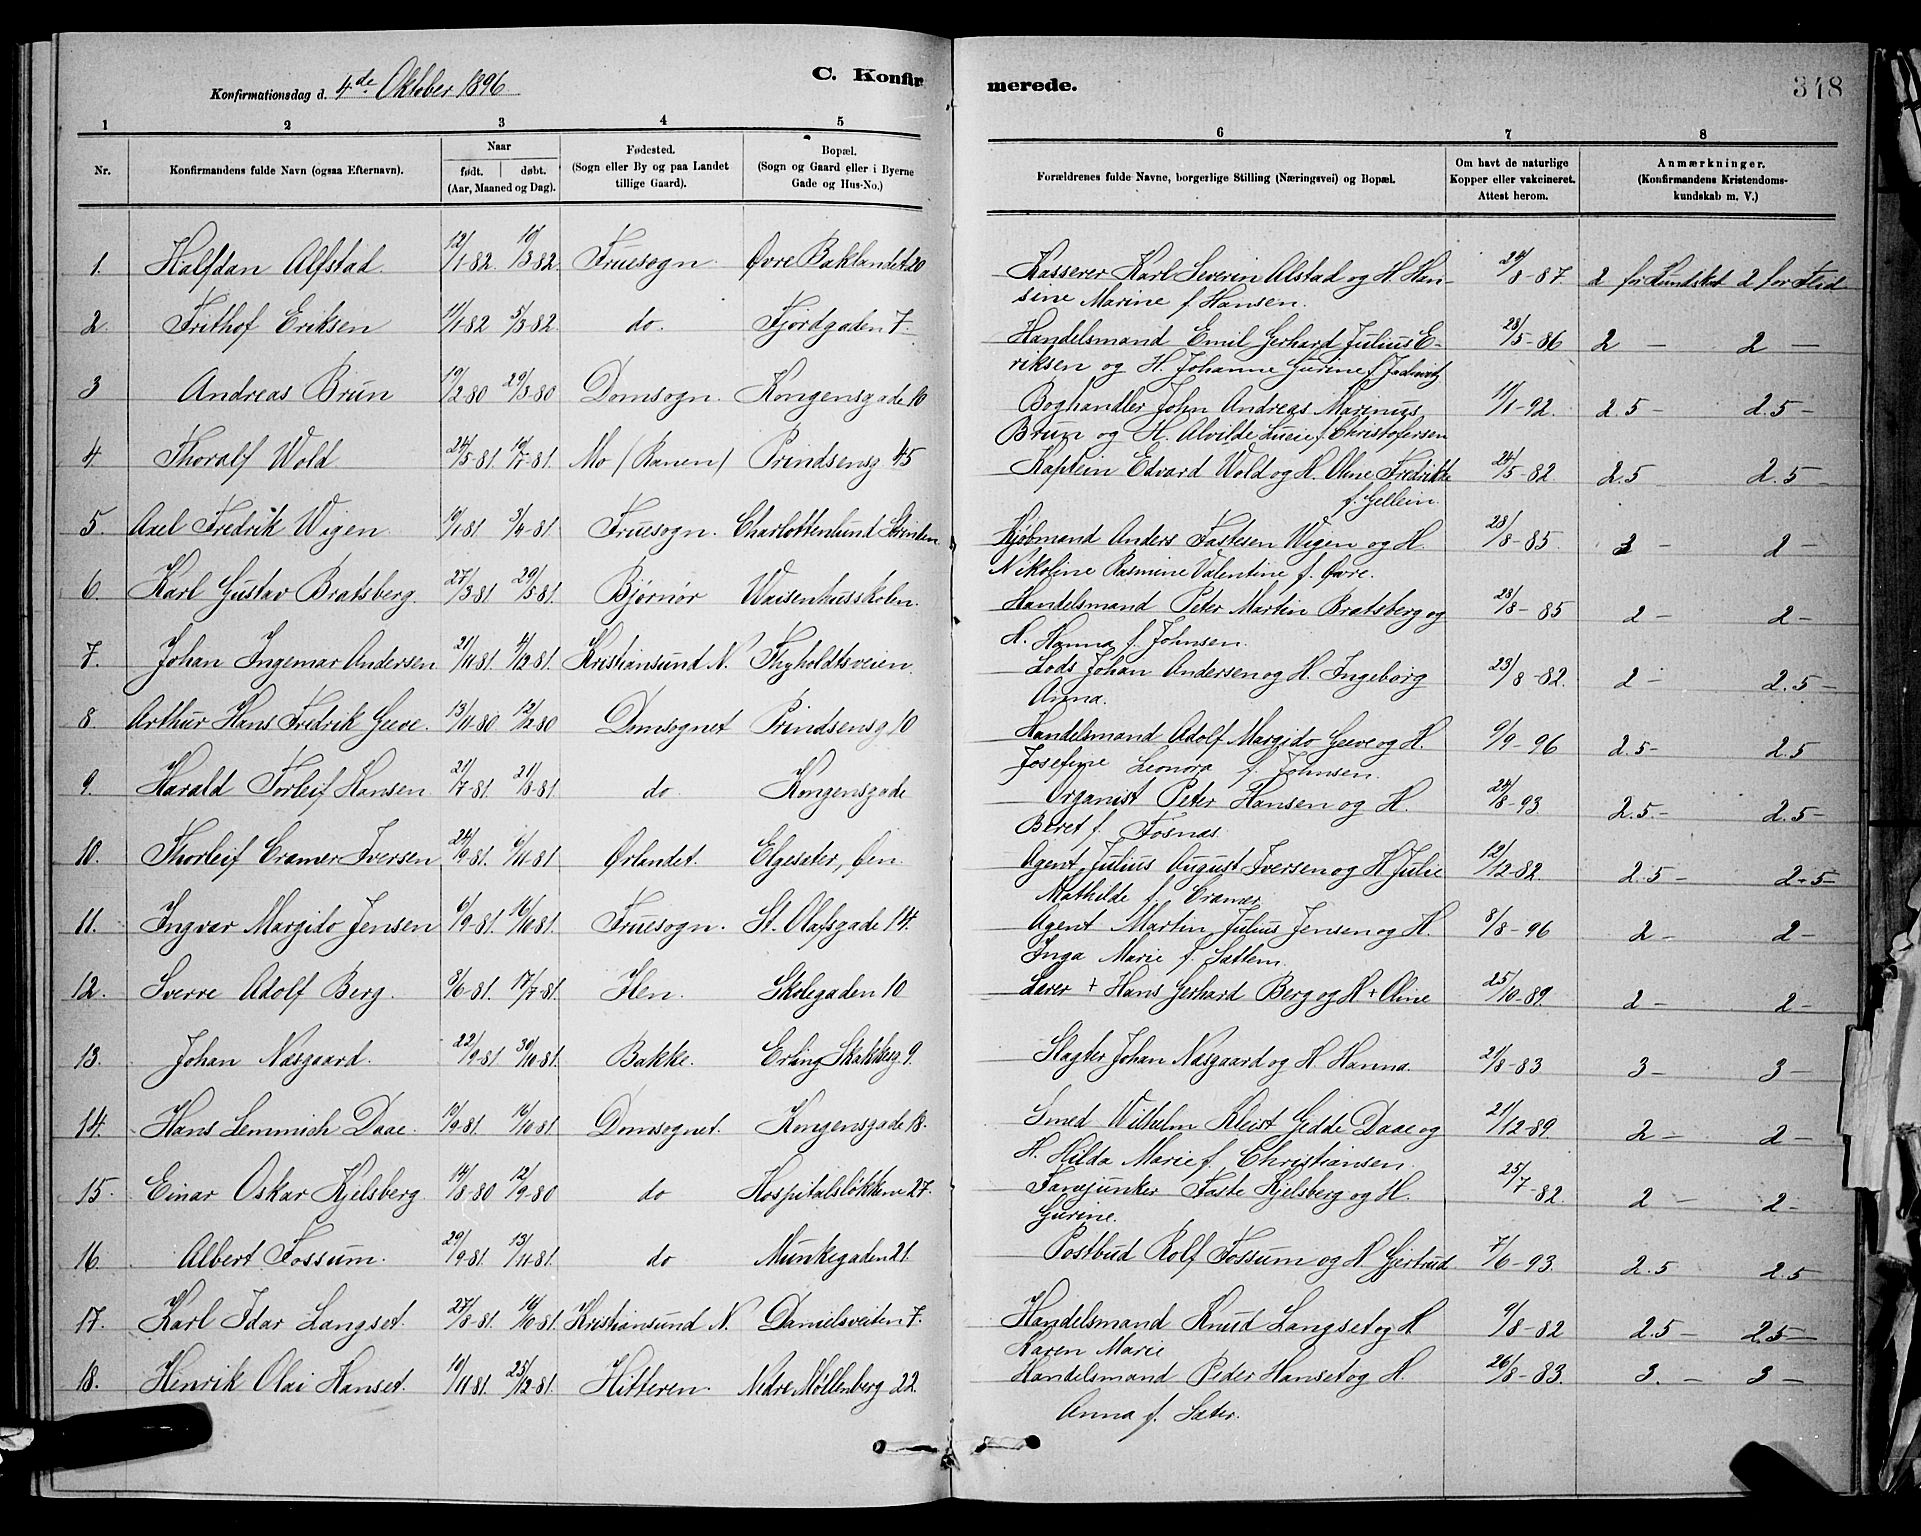 Konfirmationsdag d. 4de Oktober 1896
C. Konfir merede. 348
1 2 3 4 5 6 7 8
Nr. Konfirmandens fulde Navn (ogsaa Efternavn). Naar født. døbt. (Aar, Maaned og Dag). Fødested. (Sogn eller By og paa Landet tillige Gaard). Bopæl. (Sogn og Gaard eller i Byerne Gade og Hus-No.) Forældrenes fulde Navne, borgerlige Stilling (Næringsvei) og Bopæl. Om havt de naturlige Kopper eller vakcineret. Attest herom. Anmærkninger. (Konfirmandens Kristendomskundskab m. V.)
1. Halfdan Alfstad. 12/1-82. 10/3-82. Fruesogn. Øvre Baklandet 20 Kasserer Karl Severin Alstad og H. Han- 24/8-87. 2 for Kundskab 2 for Flid
sine Marine f. Hansen.
2. Frithof Eriksen 11/1-82 5/3-82 do. Fjordgaden 7. Handelsmand Emil Gerhard Julius E- 28/5-86 2 — 2 —
riksen og H. Johanne Gurine f.
3 Andreas Brun 19/2-80 29/3-80 Domsogn. Kongensgade 10 Boghandler John Andreas Marinus 11/1-92. 2.5 — 2.5 —
Brun og H. Alvilde Lucie f. Christofersen
4. Thoralf Wold 24/5-81. 10/7-81. Mo (Ranen) Prindsensg. 45 Kaptein Edvard Wold og H. Oline Fredrikke 24/5-82. 2.5 2.5 —
f. Gellein.
5. Axel Fredrik Wigen 10/1-81 3/4-81. Fruesogn. Charlottenlund Strinden. Kjøbmand Anders Fastesen Wigen og H. 28/8-85. 2 — 2 —
Nikoline Rasmine Valentine f. Øvre.
6. Karl Gustav Bratsberg. 27/3-81 29/5-81. Bjørnør Waisenhusskolen. Handelsmand Peter Martin Bratsberg og 28/8-85 2 — 2 —
H. Hanna f. Johnsen.
7. Johan Ingemar Andersen 21/11-81 4/12-81. Kristiansund N. Thyholdtsveien. Lods Johan Andersen og H. Ingeborg 23/8-82. 2 — 2.5 —
Anna.
8. Arthur Hans Fredrik Geeve. 13/11-80 12/12-80 Domsognet Prindsensg. 10 Handelsmand Adolf Margido Geeve og H. 9/9-96 2.5 — 2.5
Josefine Leonora f. Johnsen.
9. Harald Torleif Hansen 21/7-81. 21/8-81. do. Kongensgade Organist Peter Hansen og H. 24/8-93 2.5. — 2.5 —
Beret f. Fosnæs.
10. Thorleif Cramer Iversen 24/9-81. 6/11-81 Ørlandet. Elgeseter, Øen. Agent Julius August Iversen og H. Julie 12/12-82. 2.5 — 2.5 —
Mathilde f. Cramer.
11. Ingvar Margido Jensen 6/9-81. 16/10-81 Fruesogn. St. Olafsgade 14. Agent Martin Julius Jensen og H. 8/8-96 2 — 2 —
Inga Marie f. Sattem.
12. Sverre Adolf Berg. 3/6-81. 17/7-81. Ilen. Skolegaden 10 Lærer + Hans Gerhard Berg og H + Oline 25/10-89. 2 — 2 —
13. Johan Næsgaard. 22/9-81 30/10-81. Bakke. Erling Skakkesg. 9. Slagter Johan Næsgaard og H. Hanna. 21/8-83 3 — 3 —
14. Hans Lemmich Daae. 10/9-81. 16/10-81 Domsognet. Kongensgade 18. Smed Wilhelm Kleist Gedde Daae og 21/12-89. 2 — 2 —
H. Hilda Marie f. Christiansen.
15. Einar Oskar Kjelsberg 14/8-80 12/9-80 do Hospitalsløkken 27. Fanejunker Faste Kjelsberg og H. 25/7-82. 2 — 2 —
Gurine.
16. Albert Fossum. 29/9-81. 13/11-81. do Munkegaden 21. Postbud Rolf Fossum og H. Gjertrud 7/6-93. 2.5 2.5
17. Karl Idar Langset. 27/8-81. 16/10-81. Kristiansund N. Danielsveiten 7. Handelsmand Knud Langset og H 9/8-82 2.5 — 2.5 —
Karen Marie
18. Henrik Olai Hanset. 10/11-81. 25/12-81. Hitteren. Nedre Møllenberg 22. Handelsmand Peder Hanset og H. 26/8-83. 3. — 3 —
Anna f. Sæter.